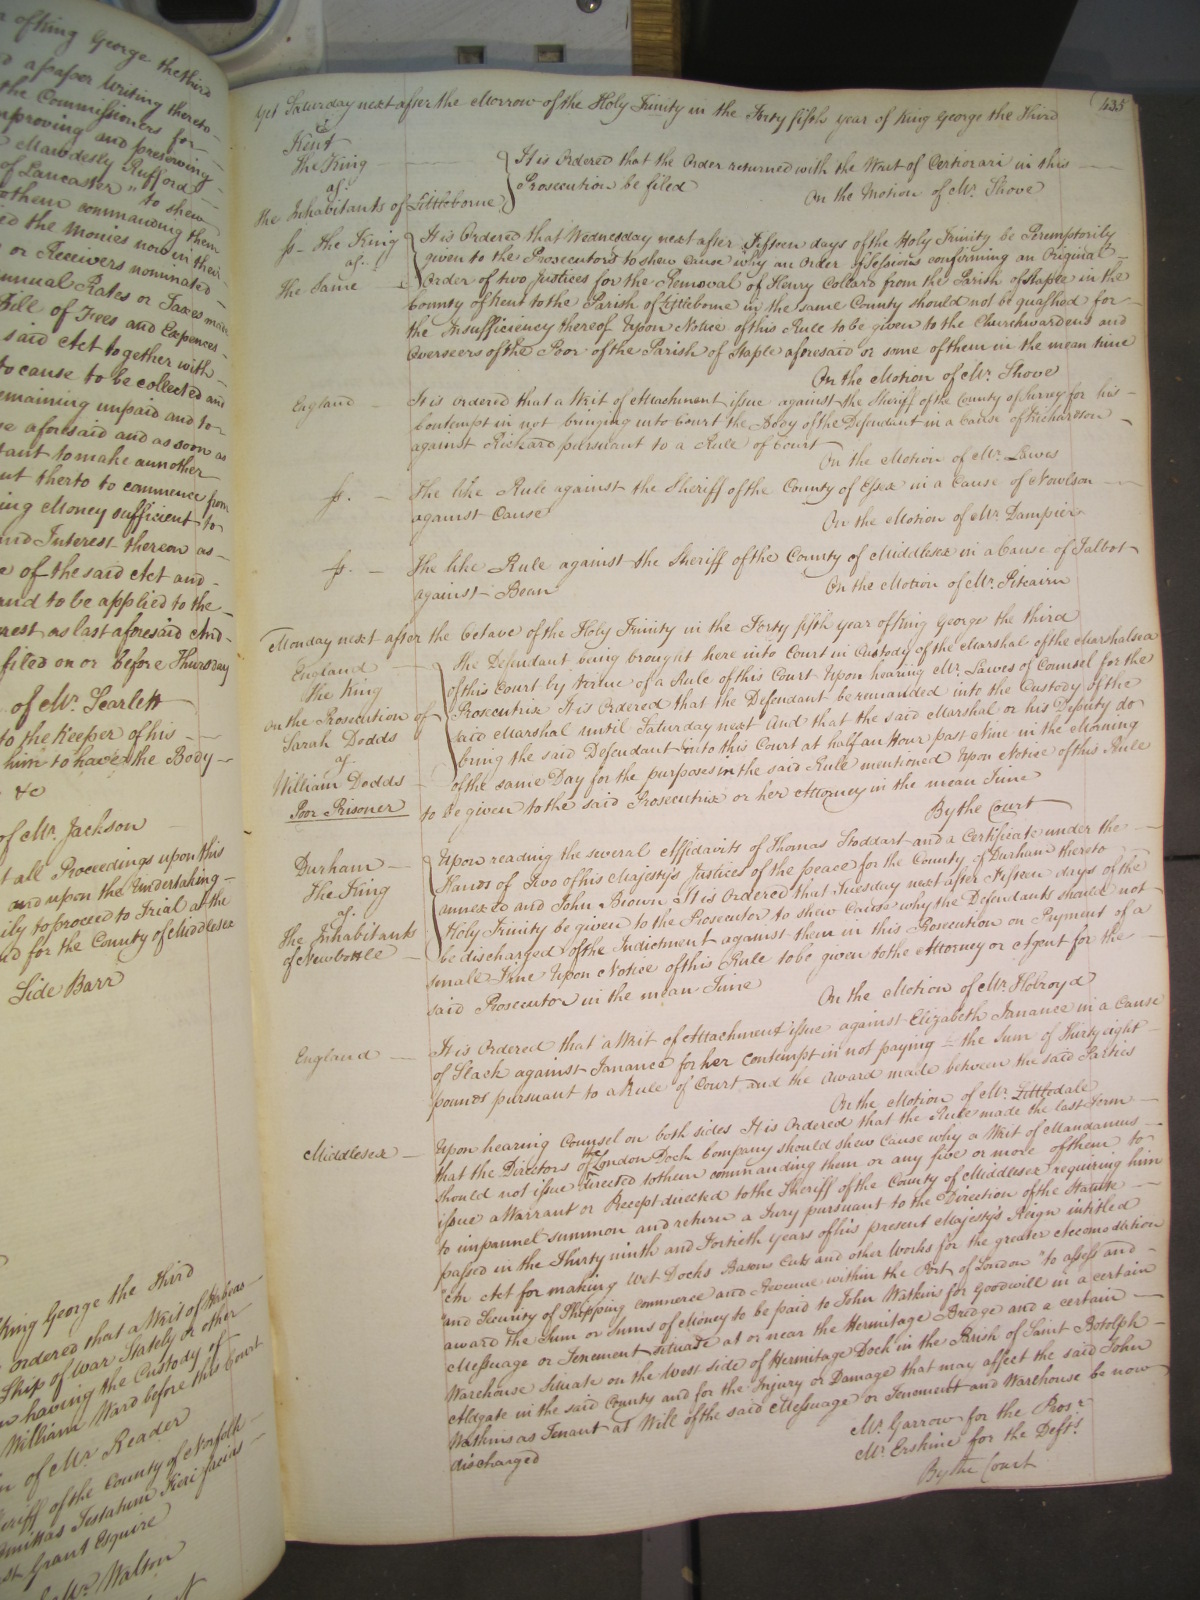 n of King George the third
d a paper Writing thereto
the Commissioners for
mproving and preserving
Mawdesly Rufford
of Lancaster " to shew
them commanding them
id the Monies now in their
or Receivers nominated
nnual Rates or Taxes made
Bill of Fees and Expences
said Act together with
to cause to be collected and
emaining unpaid and to
e aforesaid and as soon as
tant to make aunother
nt therto to commence from
ing Money sufficient to
and Interest thereon as
e of the said Act and
and to be applied to the
rest as last aforesaid And
filed on or before Thursday
of Mr. Scarlett
to the Keeper of his
him to have the Body
&c
of Mr. Jackson
t all Proceedings upon this
and upon the Undertaking
ily to proceed to Trial at the
ed for the County of Middlesex
Side Barr
King George the Third
ordered that a Writ of Habeas
Ship of War Stately or other
having the Custody of
William Ward before this Court
n of Mr Reader
eriff of the County of Norfolk
omittas Testatum Fieri facias
st Grant Esquire
Mr. Walton
435
Yet Saturday next after the Morrow of the Holy Trinity in the Forty fifth year of King George the Third
Kent
The King
agt.
The Inhabitants of Littleborne
It is Ordered that the Order returned with the Writ of Certiorari in this
Prosecution be filed
On the Motion of Mr. Shove
fs. The King
agt.
The Same
It is Ordered that Wednesday next after Fifteen days of the Holy Trinity be Peremptorily
given to the Prosecutors to shew Cause why an Order of Sessions confirming an Original
Order of two Justices for the Removal of Henry Collard from the Parish of Staple in the
County of Kent to the Parish of Littleborne in the same County should not be quashed for
the Insufficiency thereof Upon Notice of this Rule to be given to the Churchwardens and
Overseers of the Poor of the Parish of Staple aforesaid or some of them in the mean time
On the Motion of Mr. Shove
England
It is ordered that a Writ of Attachment issue against the Sheriff of the County of Surry for his
Contempt in not bringing into Court the Body of the Defendant in a Cause of Richardson
against Rickard pursuant to a Rule of Court
On the Motion of Mr. Lawes
fs.
The like Rule against the Sheriff of the County of Essex in a Cause of Nowlson
against Cause
On the Motion of Mr. Dampier
fs.
The like Rule against the Sheriff of the County of Middlesex in a Cause of Talbot
against Bean
On the Motion of Mr. Pitcairn
Monday next after the Octave of the Holy Trinity in the Forty fifth year of King George the third
England
The King
on the Prosecution of
Sarah Dodds
agt.
William Dodds
Poor Prisoner
The Defendant being brought here into Court in Custody of the Marshal of the Marshalsea
of this Court by virtue of a Rule of this Court Upon hearing Mr. Lawes of Counsel for the
Prosecutrix It is Ordered that the Defendant be remanded into the Custody of the
said Marshal until Saturday next And that the said Marshal or his Deputy do
bring the said Defendant into this Court at half an Hour past Nine in the Morning
of the same Day for the purposes in the said Rule mentioned Upon Notice of this Rule
to be given to the said Prosecutrix or her Attorney in the mean Time
By the Court
Durham
The King
agt.
The Inhabitants
of Newbottle
Upon reading the several Affidavits of Thomas Stoddart and a Certificate under the
Hands of Two of his Majesty's Justices of the peace for the County of Durham thereto
annexed and John Brown It is Ordered that Tuesday next after Fifteen days of the
Holy Trinity be given to the Prosecutor to shew Cause why the Defendants should not
be discharged of the Indictment against them in this Prosecution on Payment of a
small Fine Upon Notice of this Rule to be given to the Attorney or Agent for the
said Prosecutor in the mean Time
On the Motion of Mr. Holroyd
England
It is Ordered that a Writ of Attachment issue against Elizabeth Janance in a Cause
of Slack against Janance for her Contempt in not paying the Sum of Thirty eight
pounds pursuant to a Rule of Court and the Award made between the said Parties
On the Motion of Mr. Littledale
Middlesex
Upon hearing Counsel on both sides It is Ordered that the Rule made the last Term
that the Directors of the London Dock Company should shew Cause why a Writ of Mandamus
should not issue directed to them commanding them or any five or more of them to
issue a Warrant or Precept directed to the Sheriff of the County of Middlesex requiring him
to impannel summon and return a Jury pursuant to the Direction of the Statute
passed in the Thirty ninth and Fortieth years of his present Majesty's Reign intitled
"An Act for making Wet Docks Basons Cuts and other Works for the greater Accomodation
"and Security of Shipping Commerce and Revenue within the Port of London" to assess and
award the Sum or Sums of Money to be paid to John Watkins for Goodwill in a certain
Messuage or Tenement situate at or near the Hermitage Bridge and a certain
Warehouse Situate on the West side of Hermitage Dock in the Parish of Saint Botolph
Aldgate in the said County and for the Injury or Damage that may affect the said John
Watkins as Tenant at Will of the said Messuage or Tenement and Warehouse be now
discharged
Mr. Garrow for the Prosr.
Mr. Erskine for the Defts.
By the Court